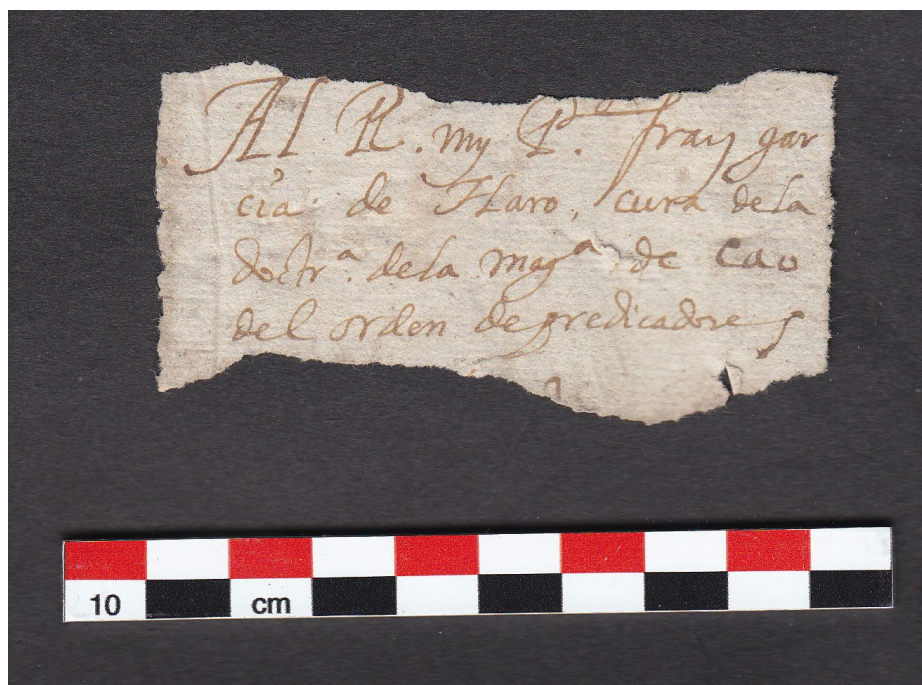 Al R. my P.e fray gar
cia de Haro, cura dela
doctr.a dela mag.a de Cao
del orden de predicadores
10 cm